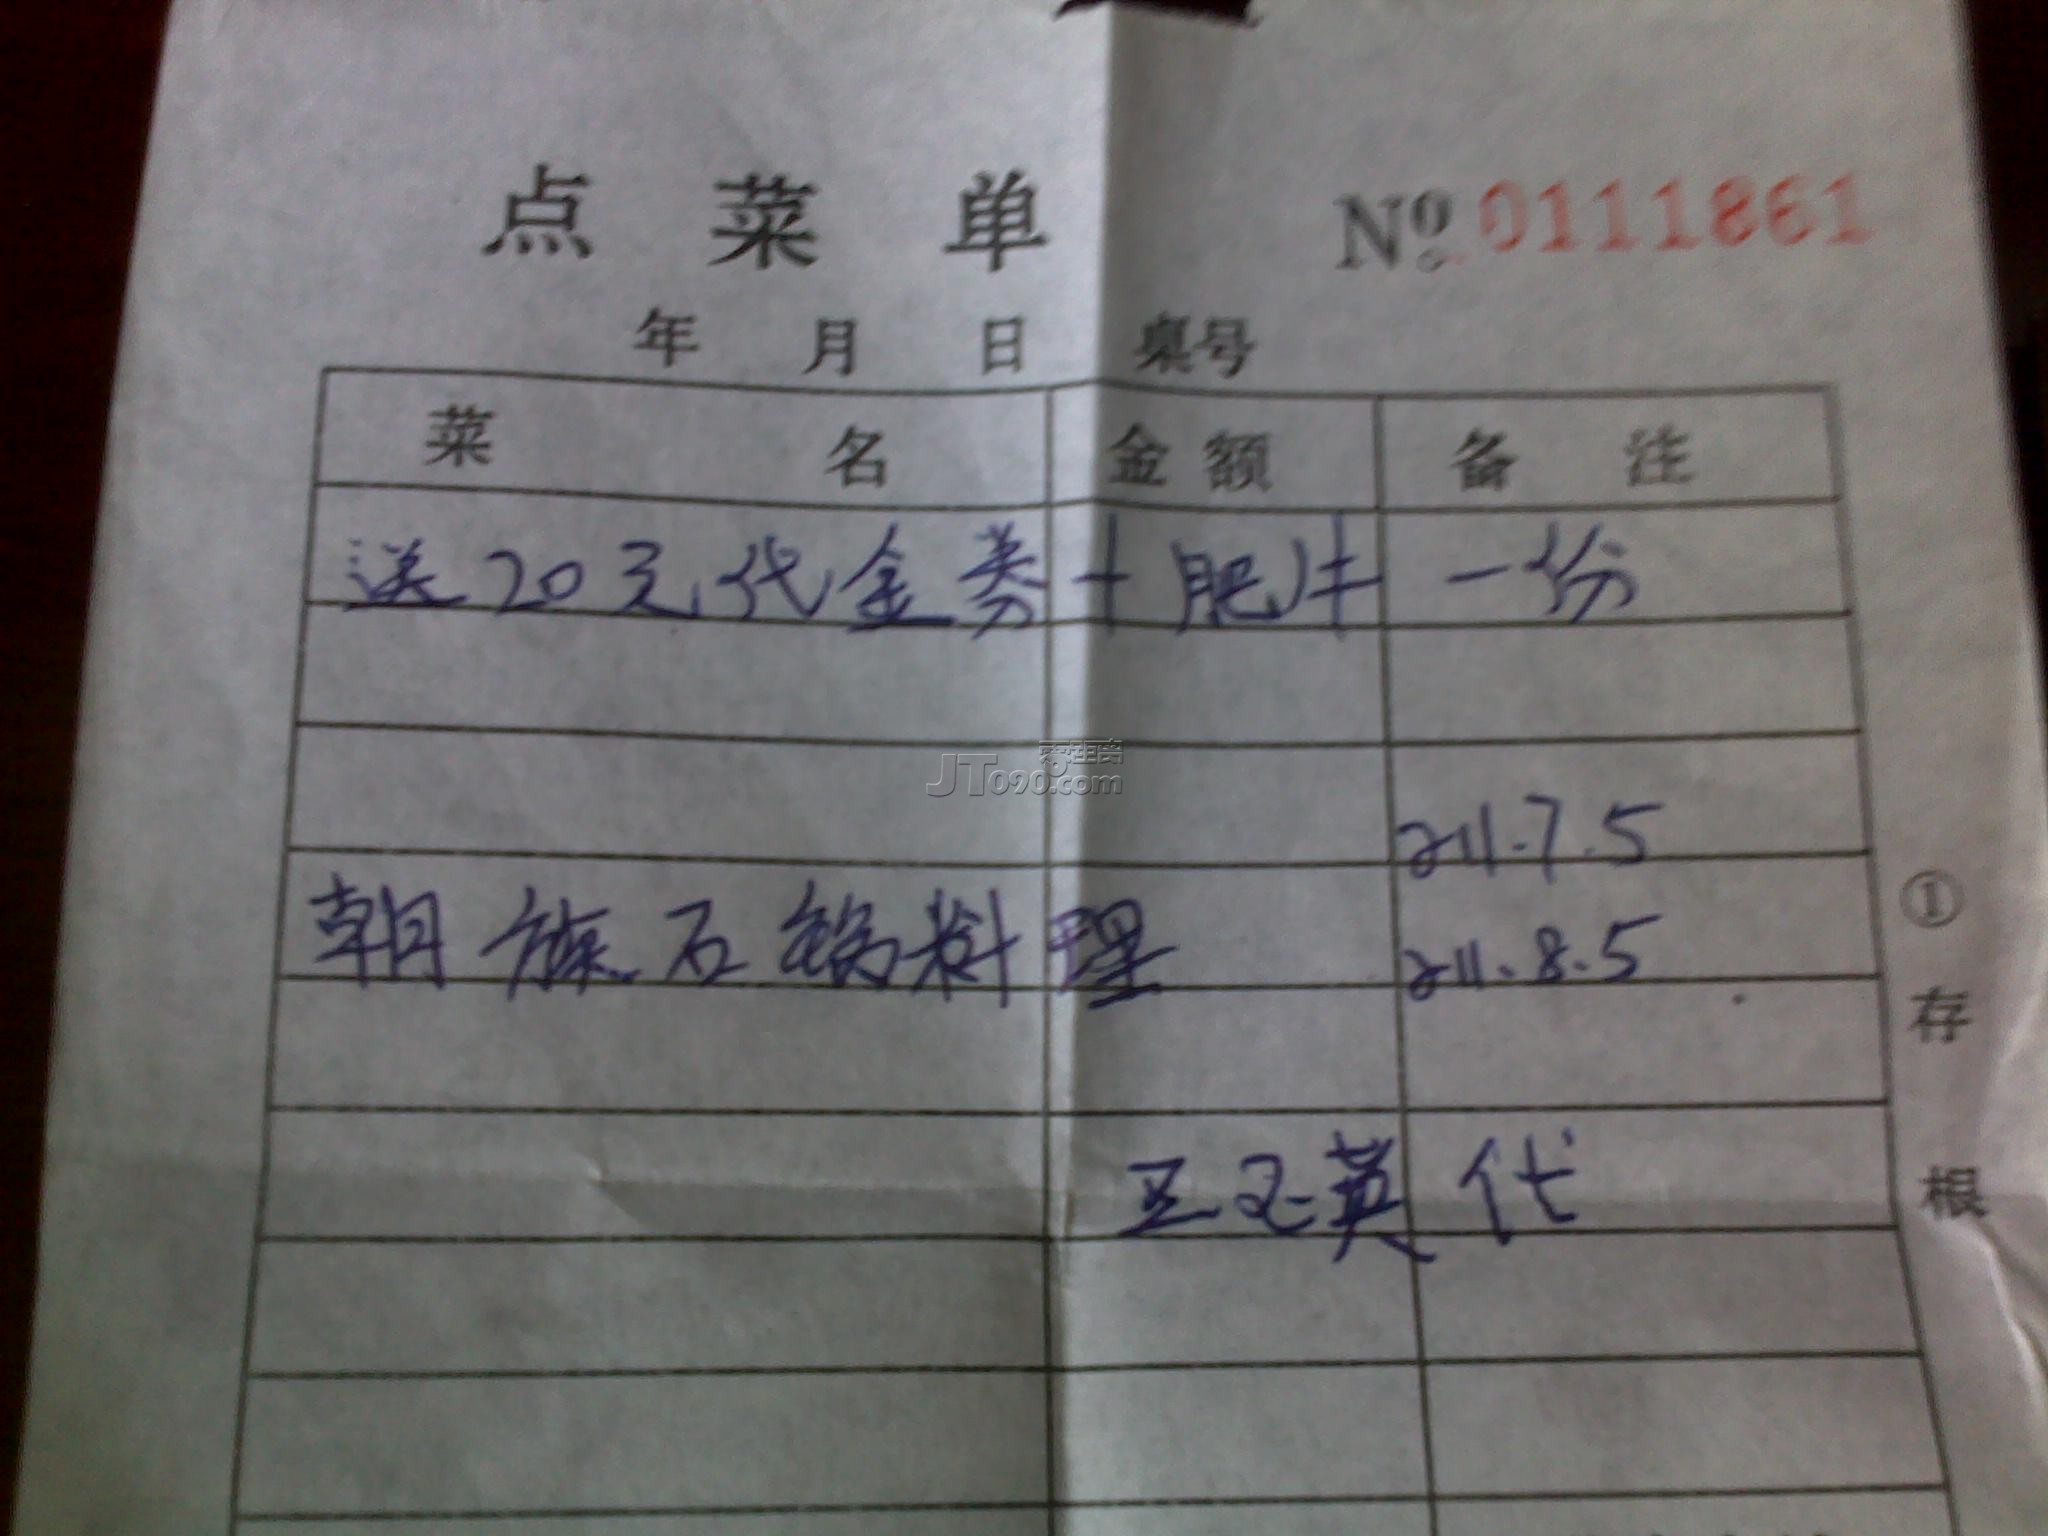 点菜单 №0111861
年 月 日 桌号
菜名 金额 备注
送20元代金券+肥牛 一份
零距离
JT090.com
2011.7.5
朝族石锅料理 2011.8.5
王玉英 代
①存根